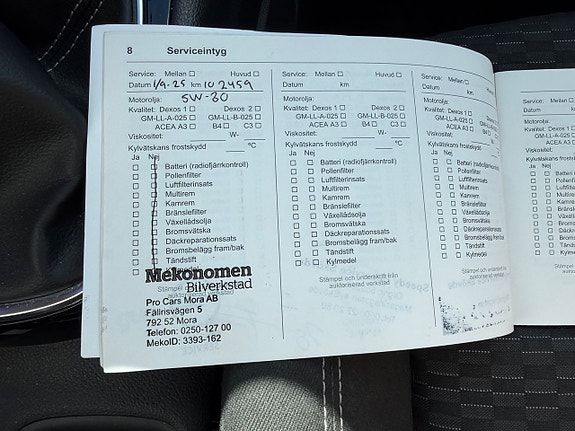 8 Serviceintyg
Service: Mellan ☐ Huvud ☐
Datum 1/9-25 km 10 2459
Motorolja: 5W-30
Kvalitet: Dexos 1 ☐ Dexos 2 ☐
GM-LL-A-025 ☐ GM-LL-B-025 ☐
ACEA A3 ☐ B4 ☐ C3 ☐
Viskositet: W-
Kylvätskans frostskydd °C
Ja Nej
☐ ☐ Batteri (radiofjärrkontroll)
☐ ☐ Pollenfilter
☐ ☐ Luftfilterinsats
☐ ☐ Multirem
☐ ☐ Kamrem
☐ ☐ Bränslefilter
☐ ☐ Växellådsolja
☐ ☐ Bromsvätska
☐ ☐ Däckreparationssats
☐ ☐ Bromsbelägg fram/bak
☐ ☐ Tändstift
Mekonomen
Bilverkstad
Stämpel
auktoriserad verkstad
Pro Cars Mora AB
Fällrisvägen 5
792 52 Mora
Telefon: 0250-127 00
MekoID: 3393-162
Service: Mellan ☐ Huvud ☐
Datum km
Motorolja:
Kvalitet: Dexos 1 ☐ Dexos 2 ☐
GM-LL-A-025 ☐ GM-LL-B-025 ☐
ACEA A3 ☐ B4 ☐ C3 ☐
Viskositet: W-
Kylvätskans frostskydd °C
Ja Nej
☐ ☐ Batteri (radiofjärrkontroll)
☐ ☐ Pollenfilter
☐ ☐ Luftfilterinsats
☐ ☐ Multirem
☐ ☐ Kamrem
☐ ☐ Bränslefilter
☐ ☐ Växellådsolja
☐ ☐ Bromsvätska
☐ ☐ Däckreparationssats
☐ ☐ Bromsbelägg fram/bak
☐ ☐ Tändstift
☐ ☐ Kylmedel
Stämpel och underskrift från
auktoriserad verkstad
Service: Mellan ☐ Huvud ☐
Datum km
Motorolja:
Kvalitet: Dexos 1 ☐ Dexos 2 ☐
GM-LL-A-025 ☐ GM-LL-B-025 ☐
ACEA A3 ☐ B4 ☐ C3 ☐
Viskositet: W-
Kylvätskans frostskydd °C
Ja Nej
☐ ☐ Batteri (radiofjärrkontroll)
☐ ☐ Pollenfilter
☐ ☐ Luftfilterinsats
☐ ☐ Multirem
☐ ☐ Kamrem
☐ ☐ Bränslefilter
☐ ☐ Växellådsolja
☐ ☐ Bromsvätska
☐ ☐ Däckreparationssats
☐ ☐ Bromsbelägg fram/bak
☐ ☐ Tändstift
☐ ☐ Kylmedel
Stämpel och underskrift från
auktoriserad verkstad